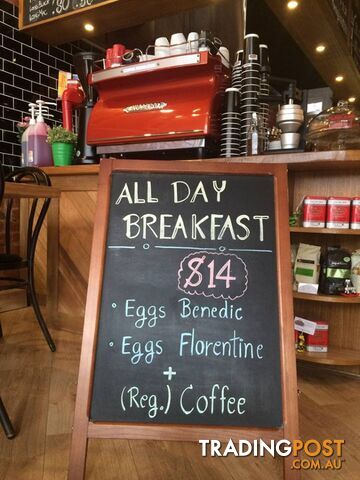 ALL DAY
BREAKFAST
$14
• Eggs Benedic
• Eggs Florentine
+
(Reg.) Coffee
TRADINGPOST
.COM.AU